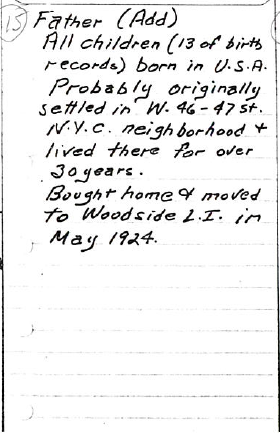 15 Father (Add)
All children (13 of birth
records) born in U.S.A.
Probably originally
settled in W. 46-47 st.
N.Y.C. neighborhood +
lived there for over
30 years.
Bought home & moved
to Woodside L.I. in
May 1924.